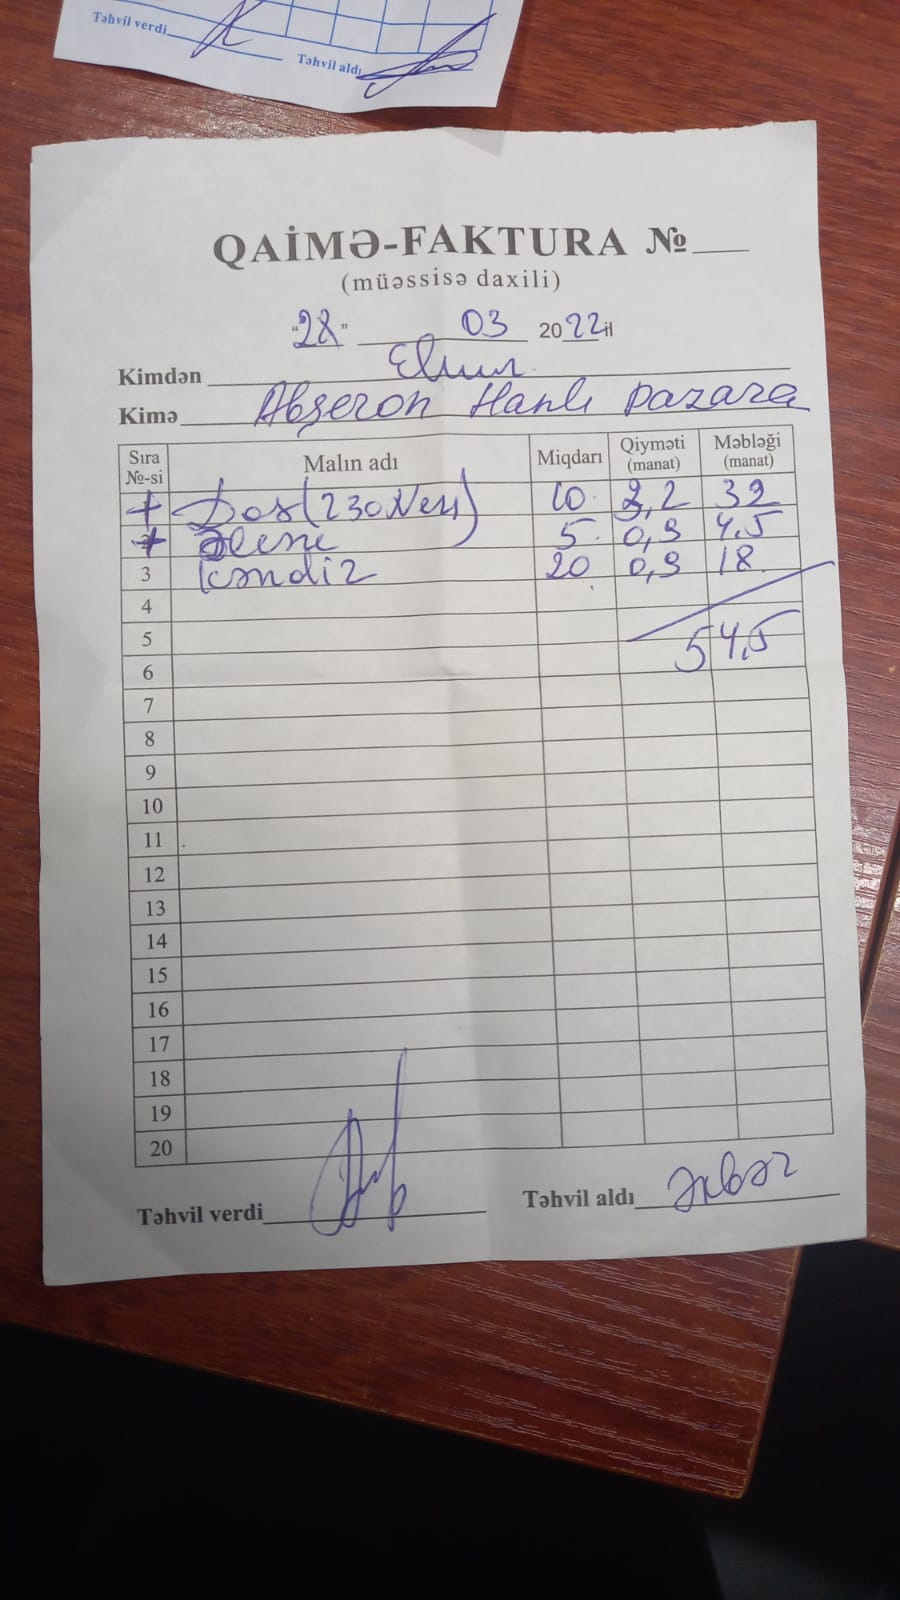 Təhvil verdi
Təhvil aldı
QAİMƏ-FAKTURA №
(müəssisə daxili)
"28" 03 2022 il
Kimdən Elnur
Kimə Abşeron Hanlı Pazara
Sıra №-si Malın adı Miqdarı Qiyməti (manat) Məbləği (manat)
+ (230 10 3,2 32
+ 5 0,9 4,5
3 Kəndiz 20 0,9 18
4
5
54,5
6
7
8
9
10
11
12
13
14
15
16
17
18
19
20
Təhvil verdi Təhvil aldı Əkbər